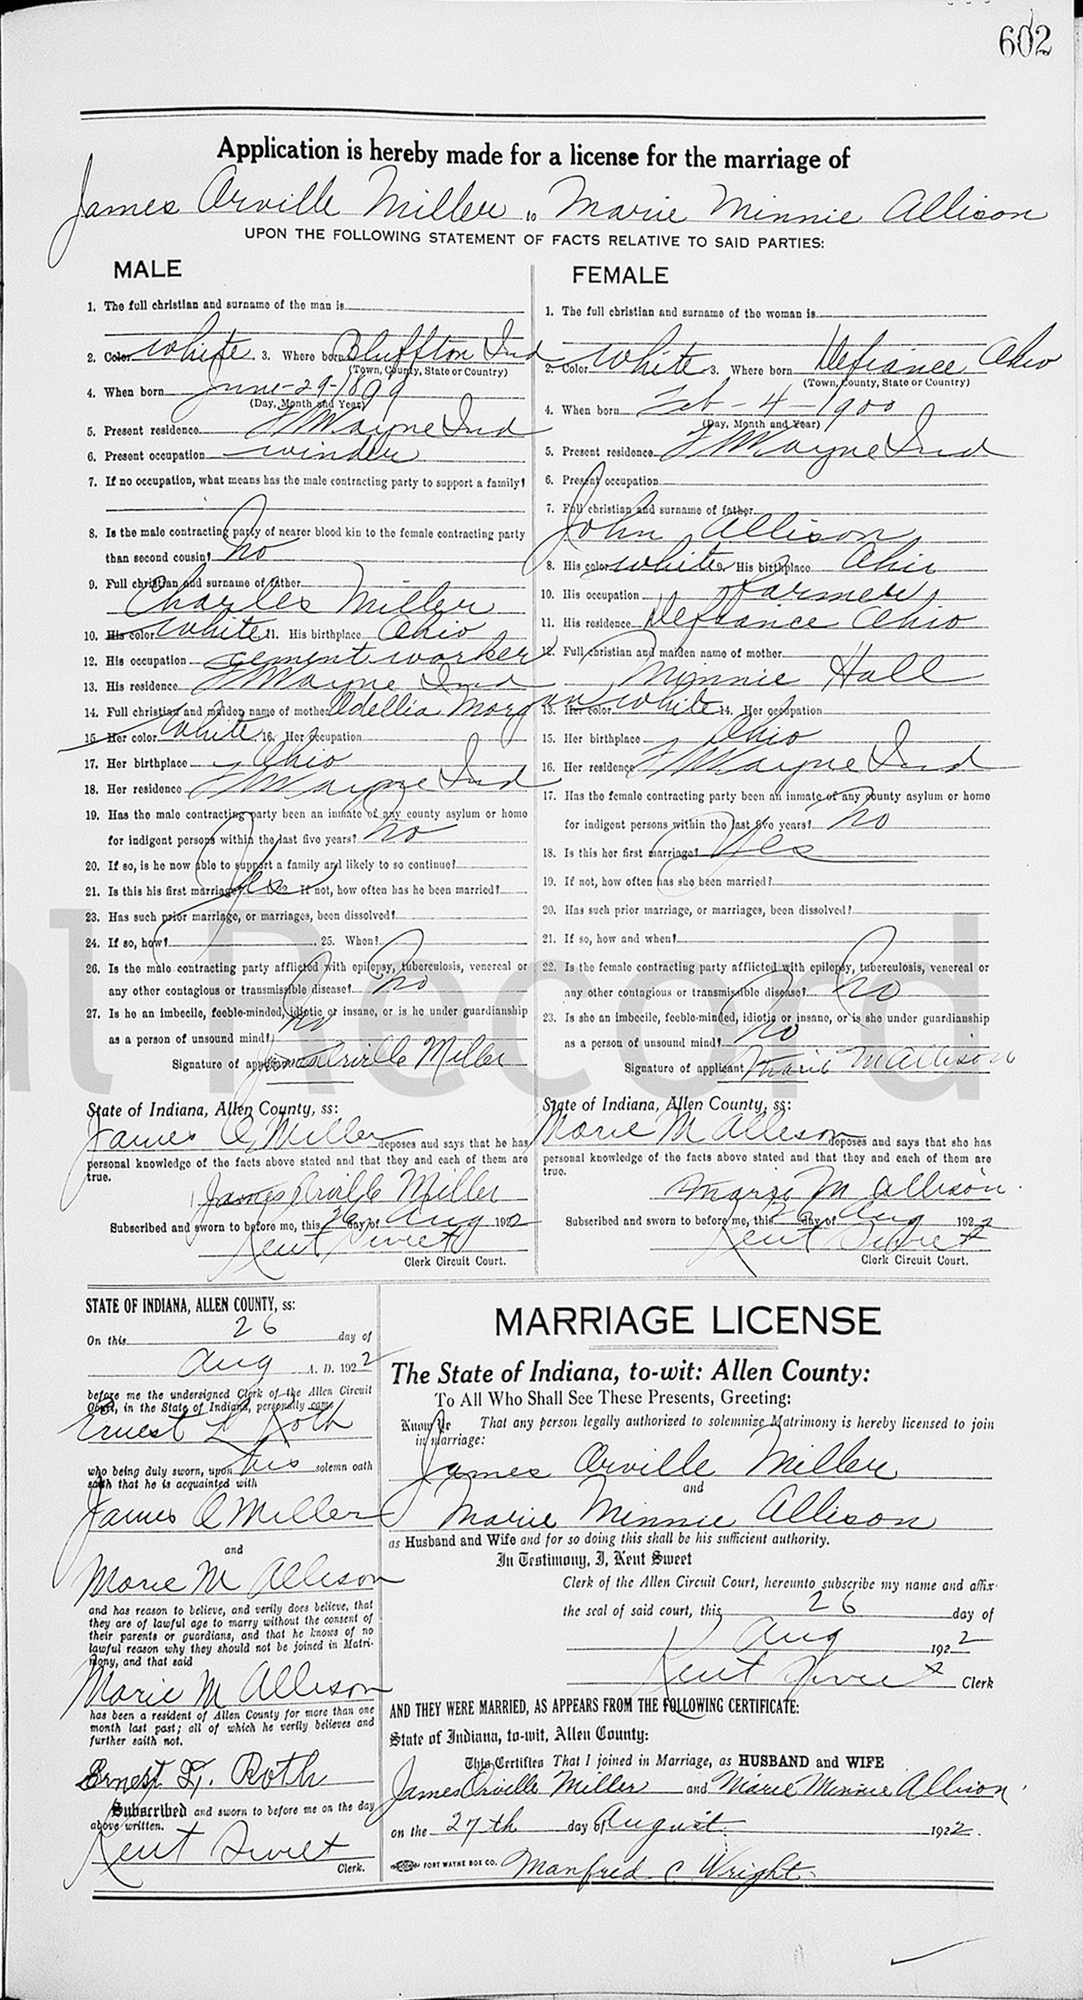 602
Application is hereby made for a license for the marriage of
James Orville Miller to Marie Minnie Allison
UPON THE FOLLOWING STATEMENT OF FACTS RELATIVE TO SAID PARTIES:
MALE
1. The full christian and surname of the man is
2. Color White 3. Where born Bluffton Ind
(Town, County, State or Country)
4. When born June-29-1899
(Day, Month and Year)
5. Present residence Ft Wayne Ind
6. Present occupation winder
7. If no occupation, what means has the male contracting party to support a family?
8. Is the male contracting party of nearer blood kin to the female contracting party
than second cousin? No
9. Full christian and surname of father
Charles Miller
10. His color White 11. His birthplace Ohio
12. His occupation cement worker
13. His residence Ft Wayne Ind
14. Full christian and maiden name of mother Udellia Morgan
15. Her color White 16. Her occupation
17. Her birthplace Ohio
18. Her residence Ft Wayne Ind
19. Has the male contracting party been an inmate of any county asylum or home
for indigent persons within the last five years? No
20. If so, is he now able to support a family and likely to so continue?
21. Is this his first marriage? Yes 22. If not, how often has he been married?
23. Has such prior marriage, or marriages, been dissolved?
24. If so, how? 25. When?
26. Is the male contracting party afflicted with epilepsy, tuberculosis, venereal or
any other contagious or transmissible disease? No
27. Is he an imbecile, feeble-minded, idiotic or insane, or is he under guardianship
as a person of unsound mind? No
Signature of applicant James Orville Miller
State of Indiana, Allen County, ss:
James O Miller deposes and says that he has
personal knowledge of the facts above stated and that they and each of them are
true.
James Orville Miller
Subscribed and sworn to before me, this 26 day of Aug 1922
Kent Sweet
Clerk Circuit Court.
FEMALE
1. The full christian and surname of the woman is
2. Color White 3. Where born Defiance Ohio
(Town, County, State or Country)
4. When born Feb-4-1900
(Day, Month and Year)
5. Present residence Ft Wayne Ind
6. Present occupation
7. Full christian and surname of father
John Allison
8. His color White 9. His birthplace Ohio
10. His occupation Farmer
11. His residence Defiance Ohio
12. Full christian and maiden name of mother
Minnie Hall
13. Her color White 14. Her occupation
15. Her birthplace Ohio
16. Her residence Ft Wayne Ind
17. Has the female contracting party been an inmate of any county asylum or home
for indigent persons within the last five years? No
18. Is this her first marriage? Yes
19. If not, how often has she been married?
20. Has such prior marriage, or marriages, been dissolved?
21. If so, how and when?
22. Is the female contracting party afflicted with epilepsy, tuberculosis, venereal or
any other contagious or transmissible disease? No
23. Is she an imbecile, feeble-minded, idiotic or insane, or is she under guardianship
as a person of unsound mind? No
Signature of applicant Marie M Allison
State of Indiana, Allen County, ss:
Marie M Allison deposes and says that she has
personal knowledge of the facts above stated and that they and each of them are
true.
Marie M Allison
Subscribed and sworn to before me, this 26 day of Aug 1922
Kent Sweet
Clerk Circuit Court.
l Record
STATE OF INDIANA, ALLEN COUNTY, ss:
On this 26 day of
Aug A. D. 1922
before me the undersigned Clerk of the Allen Circuit
Court, in the State of Indiana, personally came
Ernest L Roth
who being duly sworn, upon his solemn oath
saith that he is acquainted with
James O Miller
and
Marie M Allison
and has reason to believe, and verily does believe, that
they are of lawful age to marry without the consent of
their parents or guardians, and that he knows of no
lawful reason why they should not be joined in Matri-
mony, and that said
Marie M Allison
has been a resident of Allen County for more than one
month last past; all of which he verily believes and
further saith not.
Ernest L. Roth
Subscribed and sworn to before me on the day
above written.
Kent Sweet
Clerk.
MARRIAGE LICENSE
The State of Indiana, to-wit: Allen County:
To All Who Shall See These Presents, Greeting:
Know Ye That any person legally authorized to solemnize Matrimony is hereby licensed to join
in marriage:
James Orville Miller
and
Marie Minnie Allison
as Husband and Wife and for so doing this shall be his sufficient authority.
In Testimony, I, Kent Sweet
Clerk of the Allen Circuit Court, hereunto subscribe my name and affix
the seal of said court, this 26 day of
Aug 1922
Kent Sweet Clerk
AND THEY WERE MARRIED, AS APPEARS FROM THE FOLLOWING CERTIFICATE:
State of Indiana, to-wit, Allen County:
This Certifies That I joined in Marriage, as HUSBAND and WIFE
James Orville Miller and Marie Minnie Allison
on the 27th day of August 1922.
FORT WAYNE BOX CO. Manfred C Wright